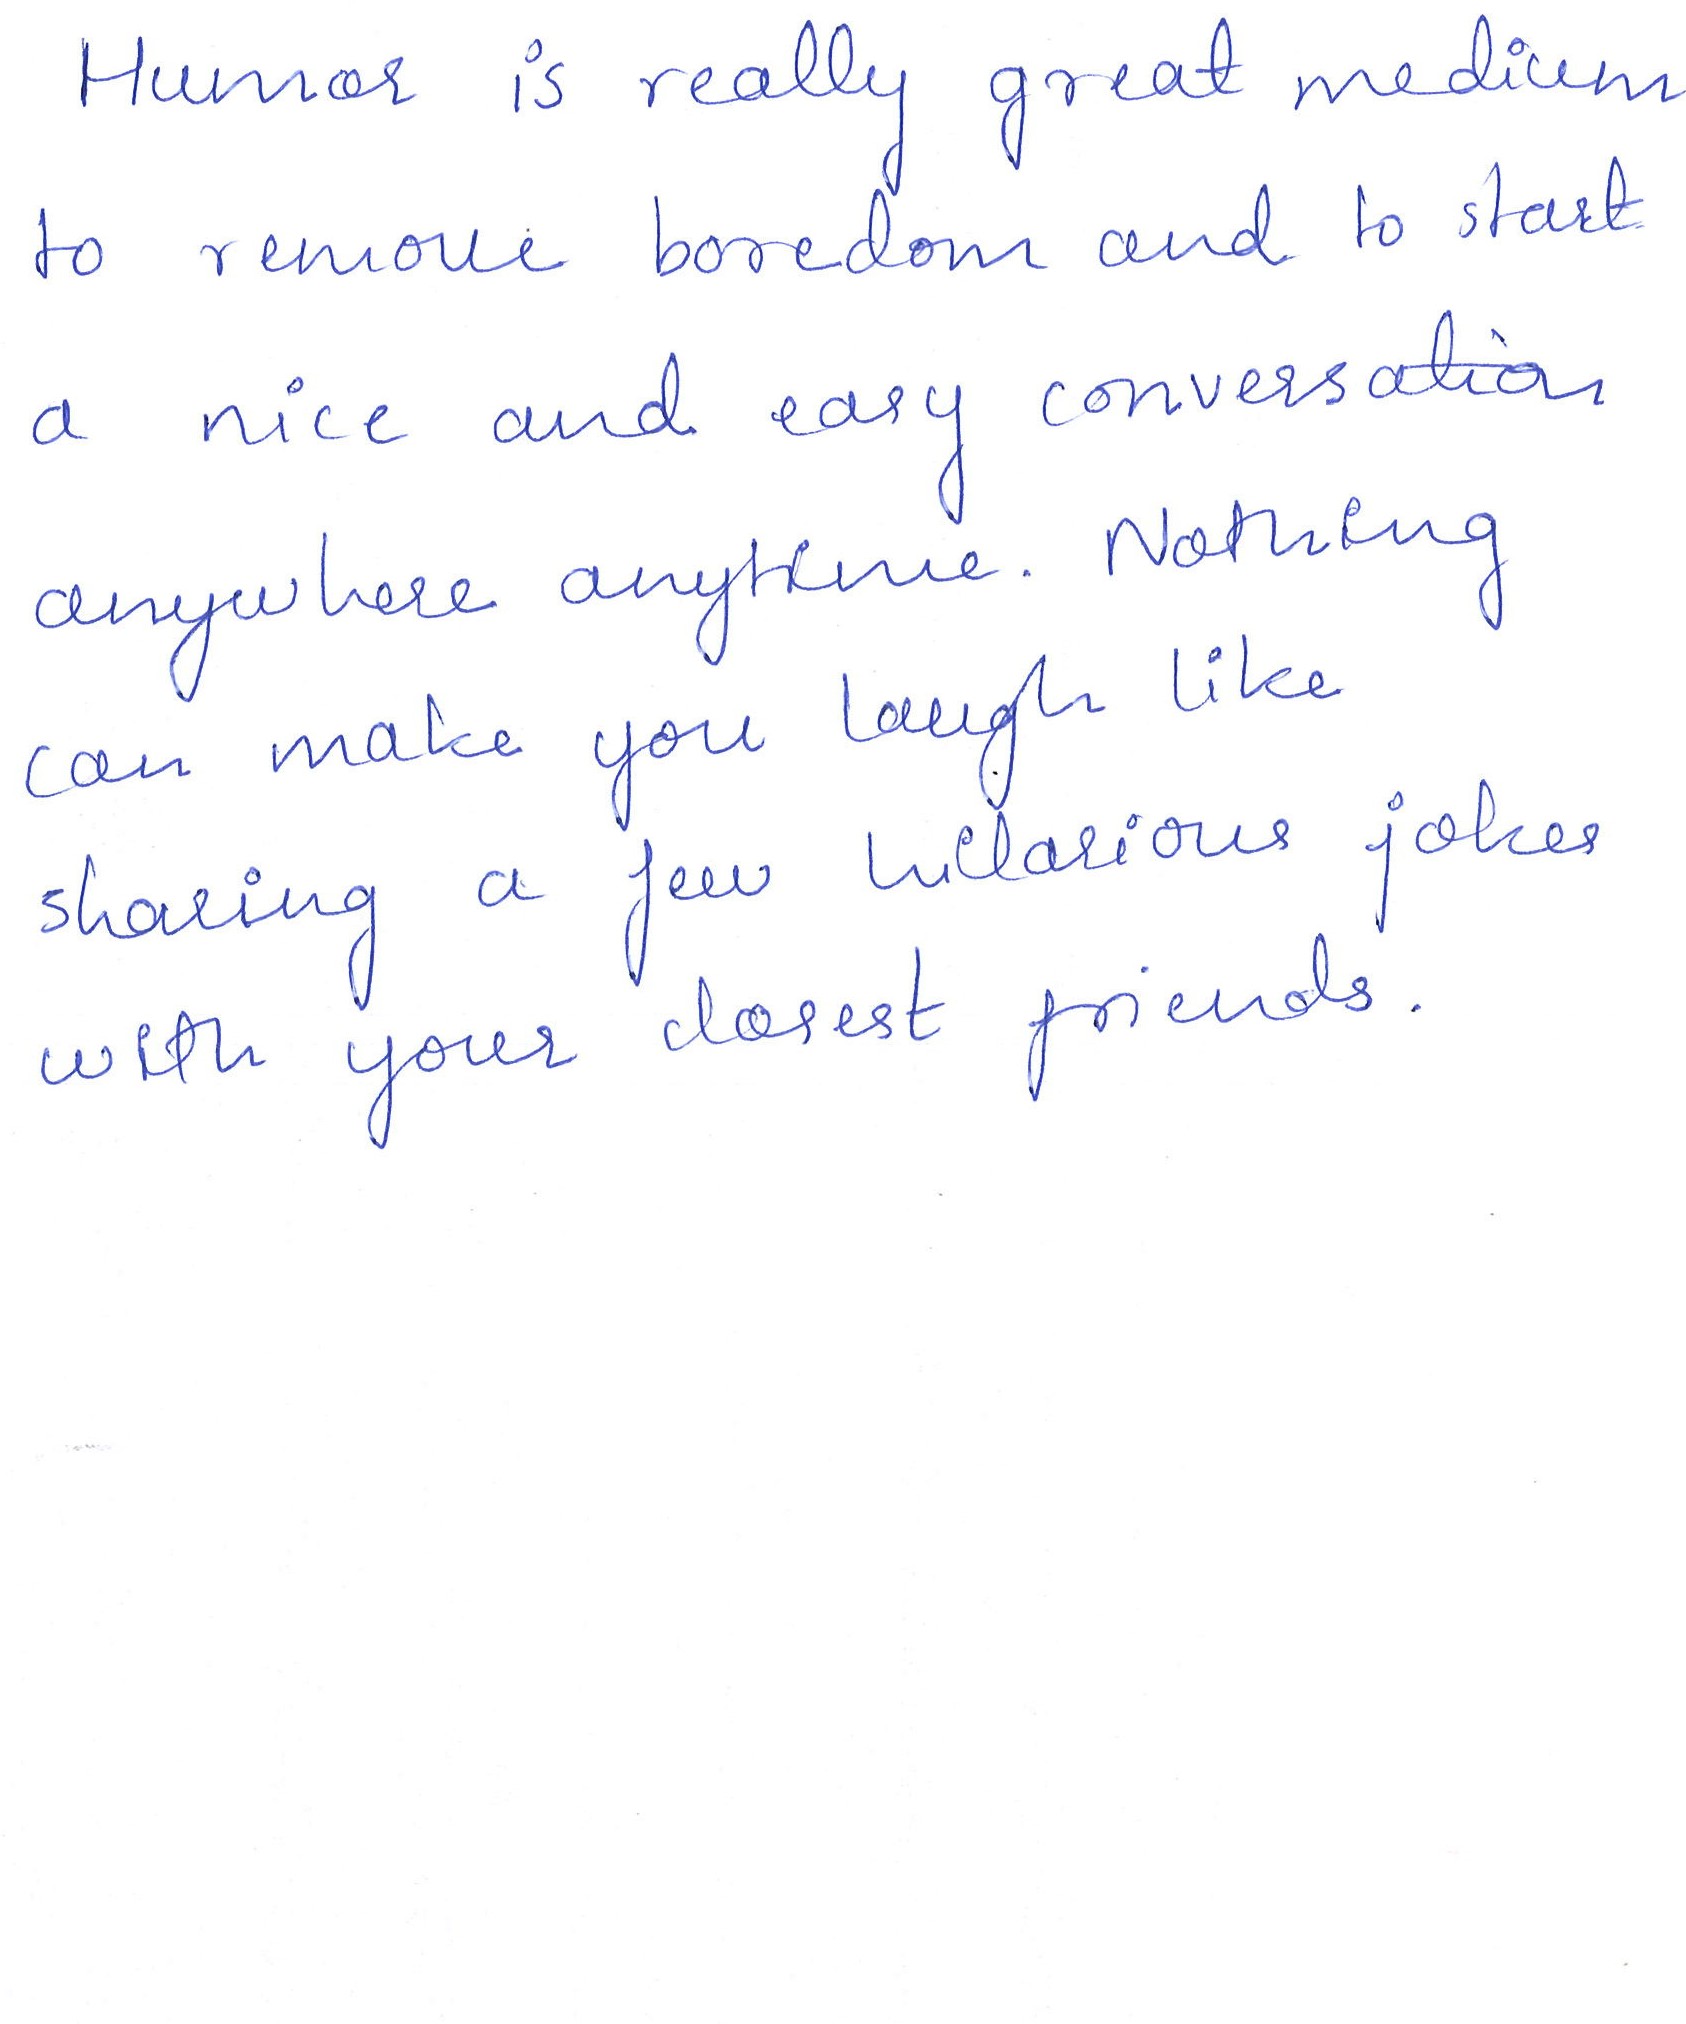 Humor is really great medium
to remove boredom and to start
a nice and easy conversation
anywhere anytime. Nothing
can make you laugh like
sharing a few hilarious jokes
with your closest friends.